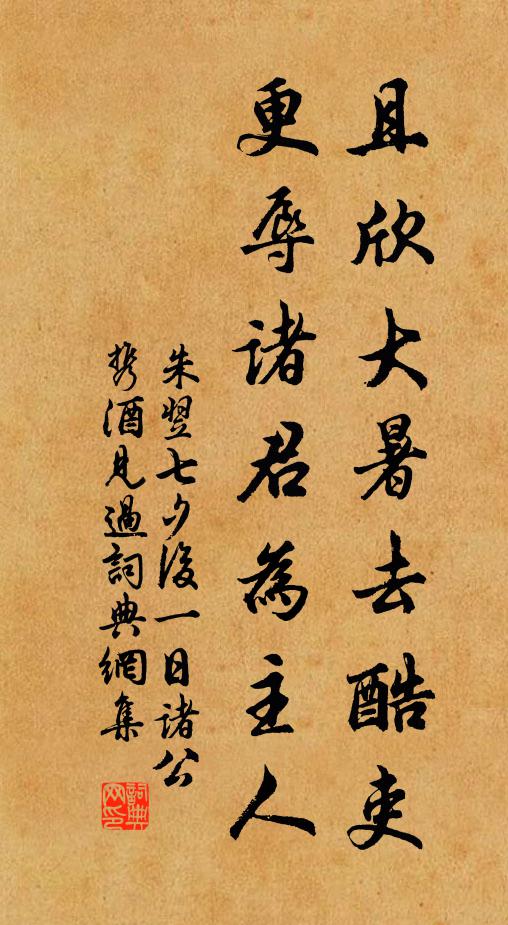 且欣大暑去酷吏
更辱諸君為主人
朱翌七夕後一日諸公
携酒見過詞典網集
詞典网印